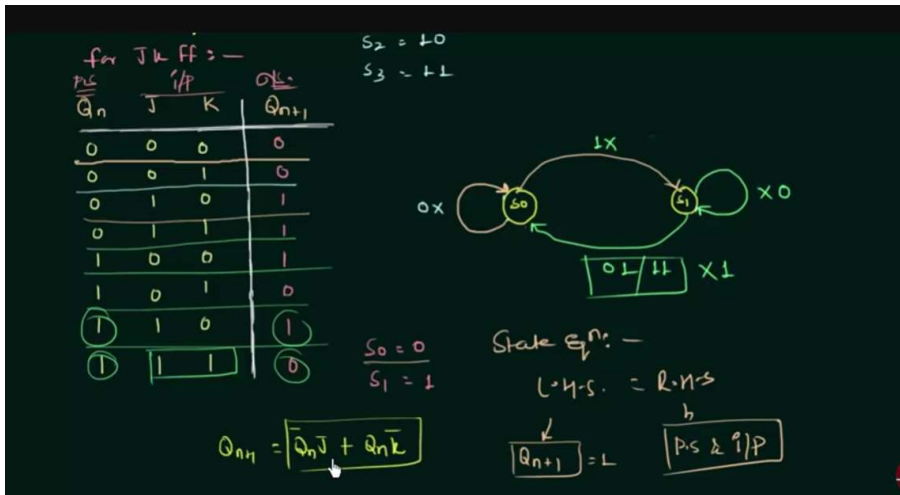 for JK ff :—
P.S i/P O/S.
Qn J K Qn+1
0 0 0 0
0 0 1 0
0 1 0 1
0 1 1 1
1 0 0 1
1 0 1 0
1 1 0 1
1 1 1 0
S2 = 10
S3 = 11
1X
0X S0 S1 X0
01/11 X1
S0 = 0
S1 = 1
State Eqn: —
L.H.S. = R.H.S
Qn+1 = 1 P.S & i/P
Qn+1 = Q̅nJ + QnK̅